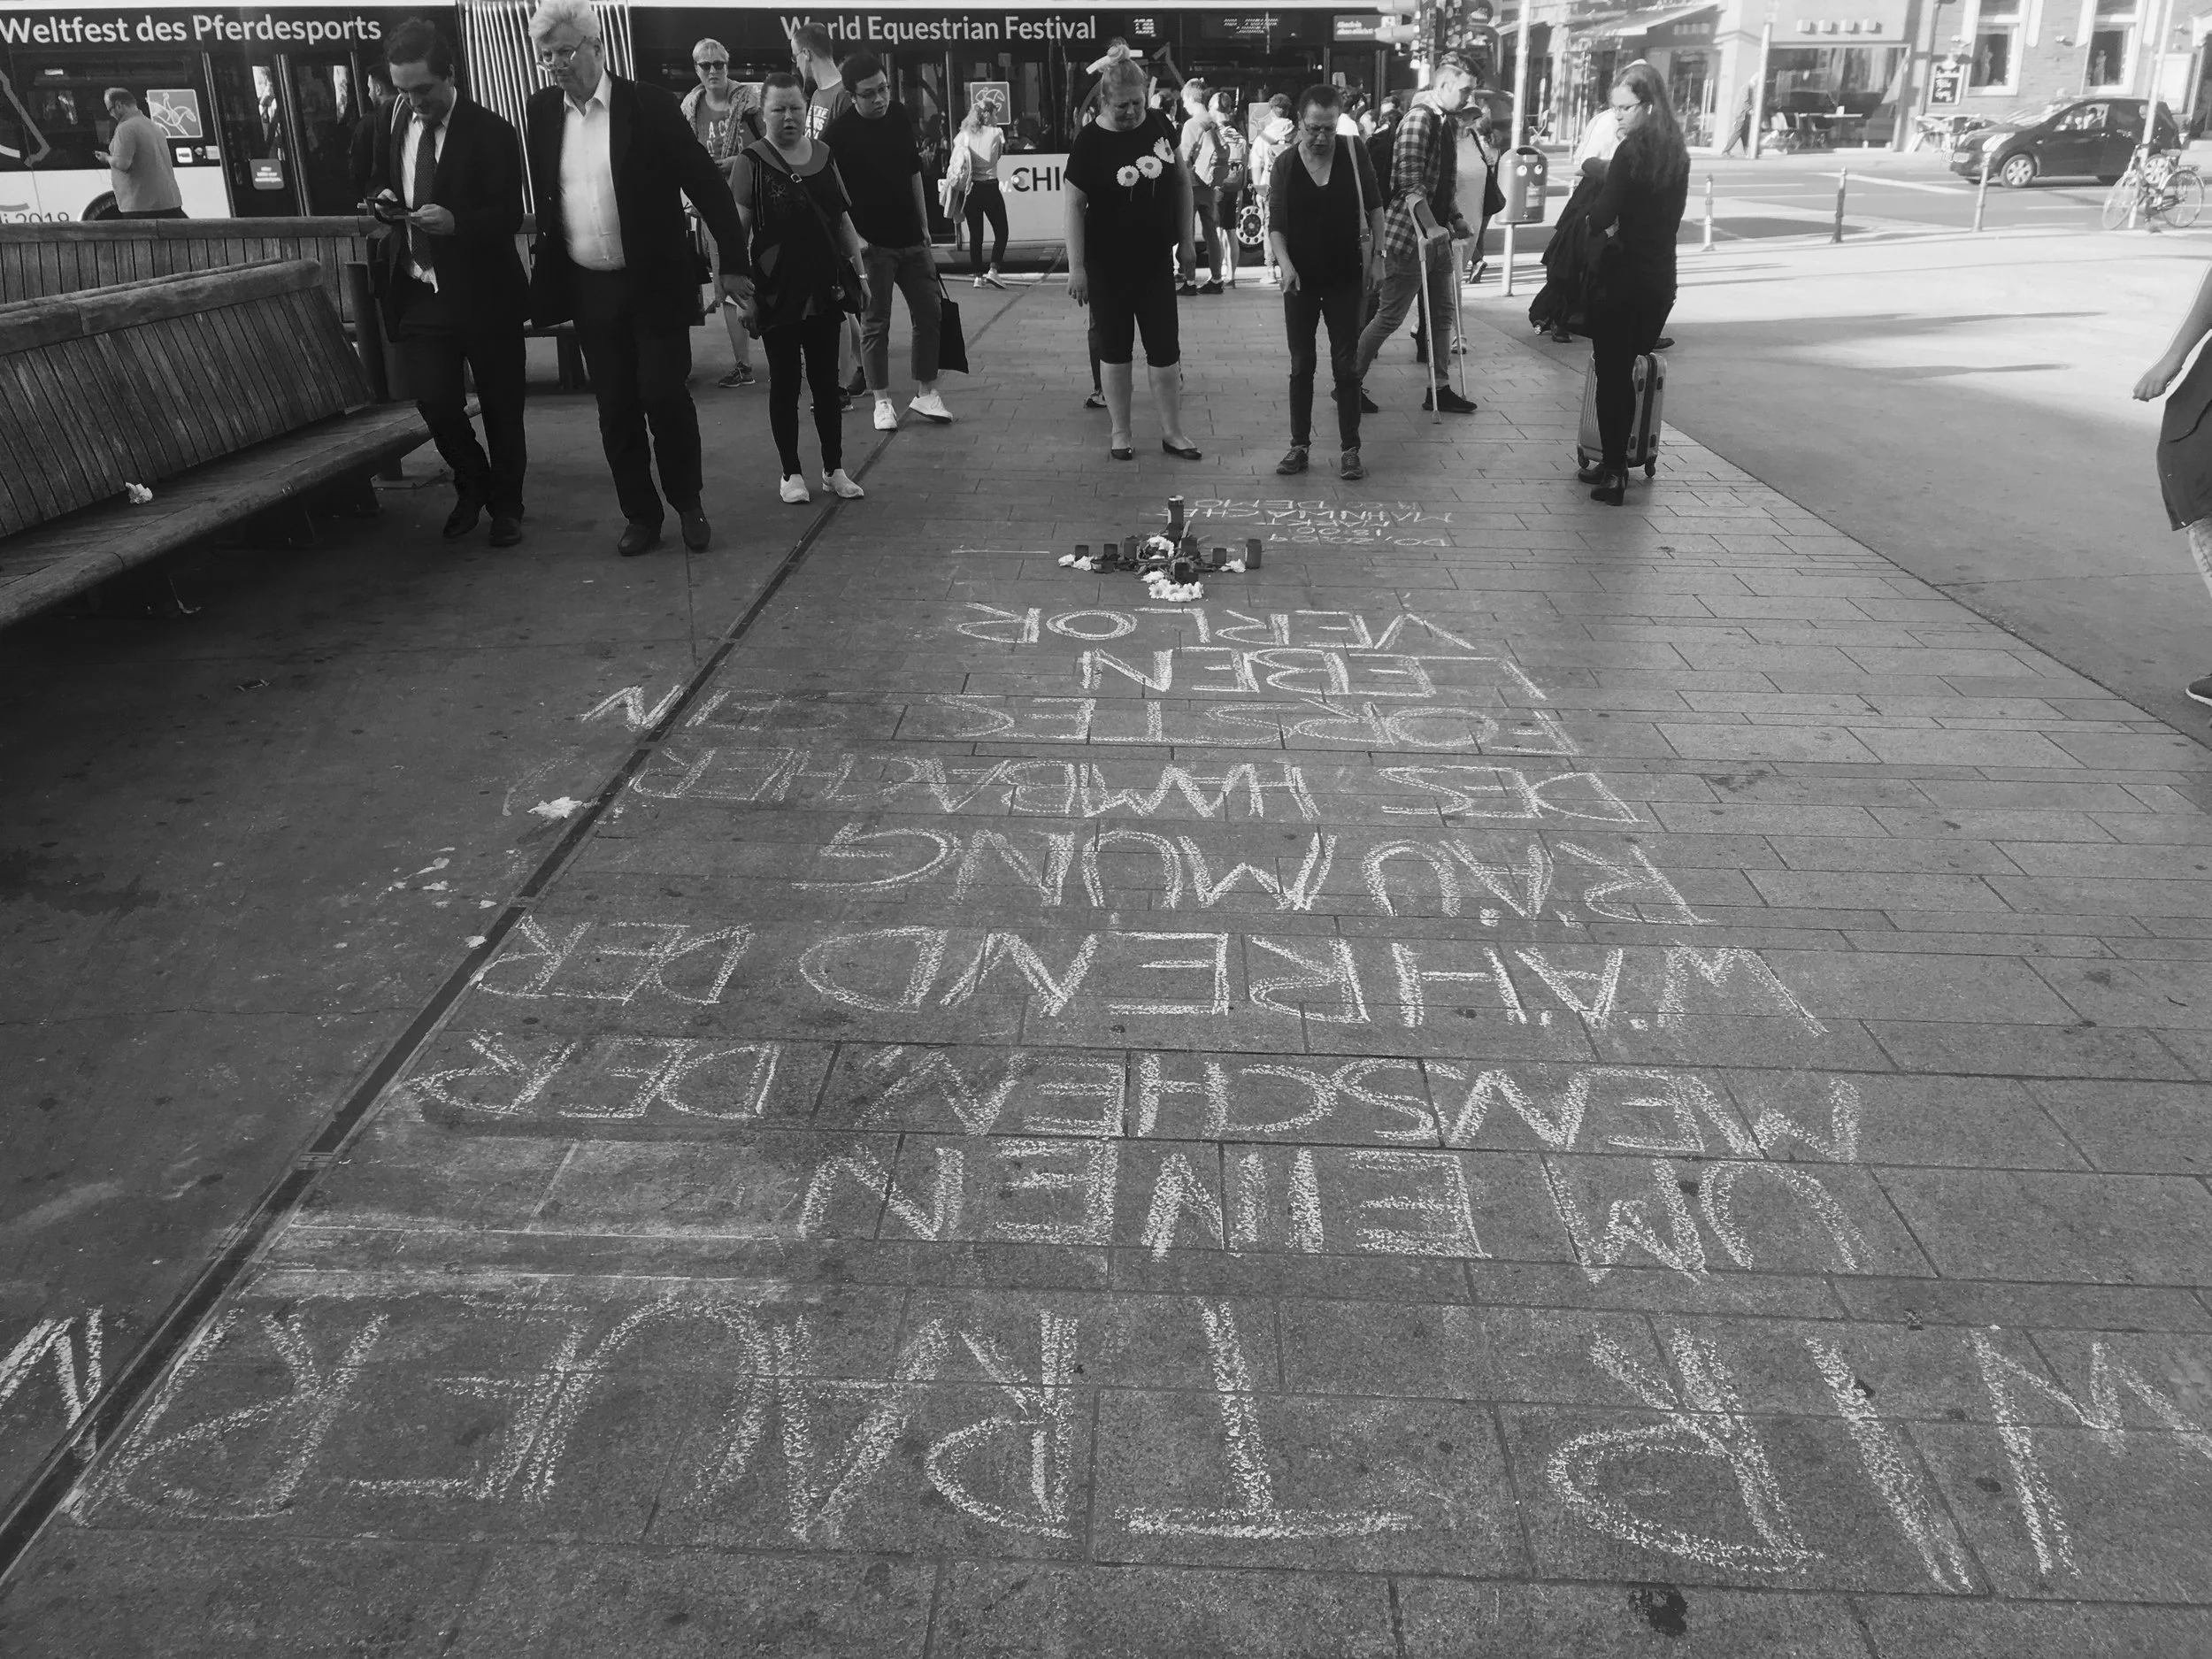 Weltfest des Pferdesports
World Equestrian Festival
CHI
2019
WIR TRAUERN
UM EINEN
MENSCHEN, DER
WÄHREND DER
RÄUMUNG
DES HAMBACHER
FORSTES SEIN
LEBEN
VERLOR
MAHNWACHE
DEMO